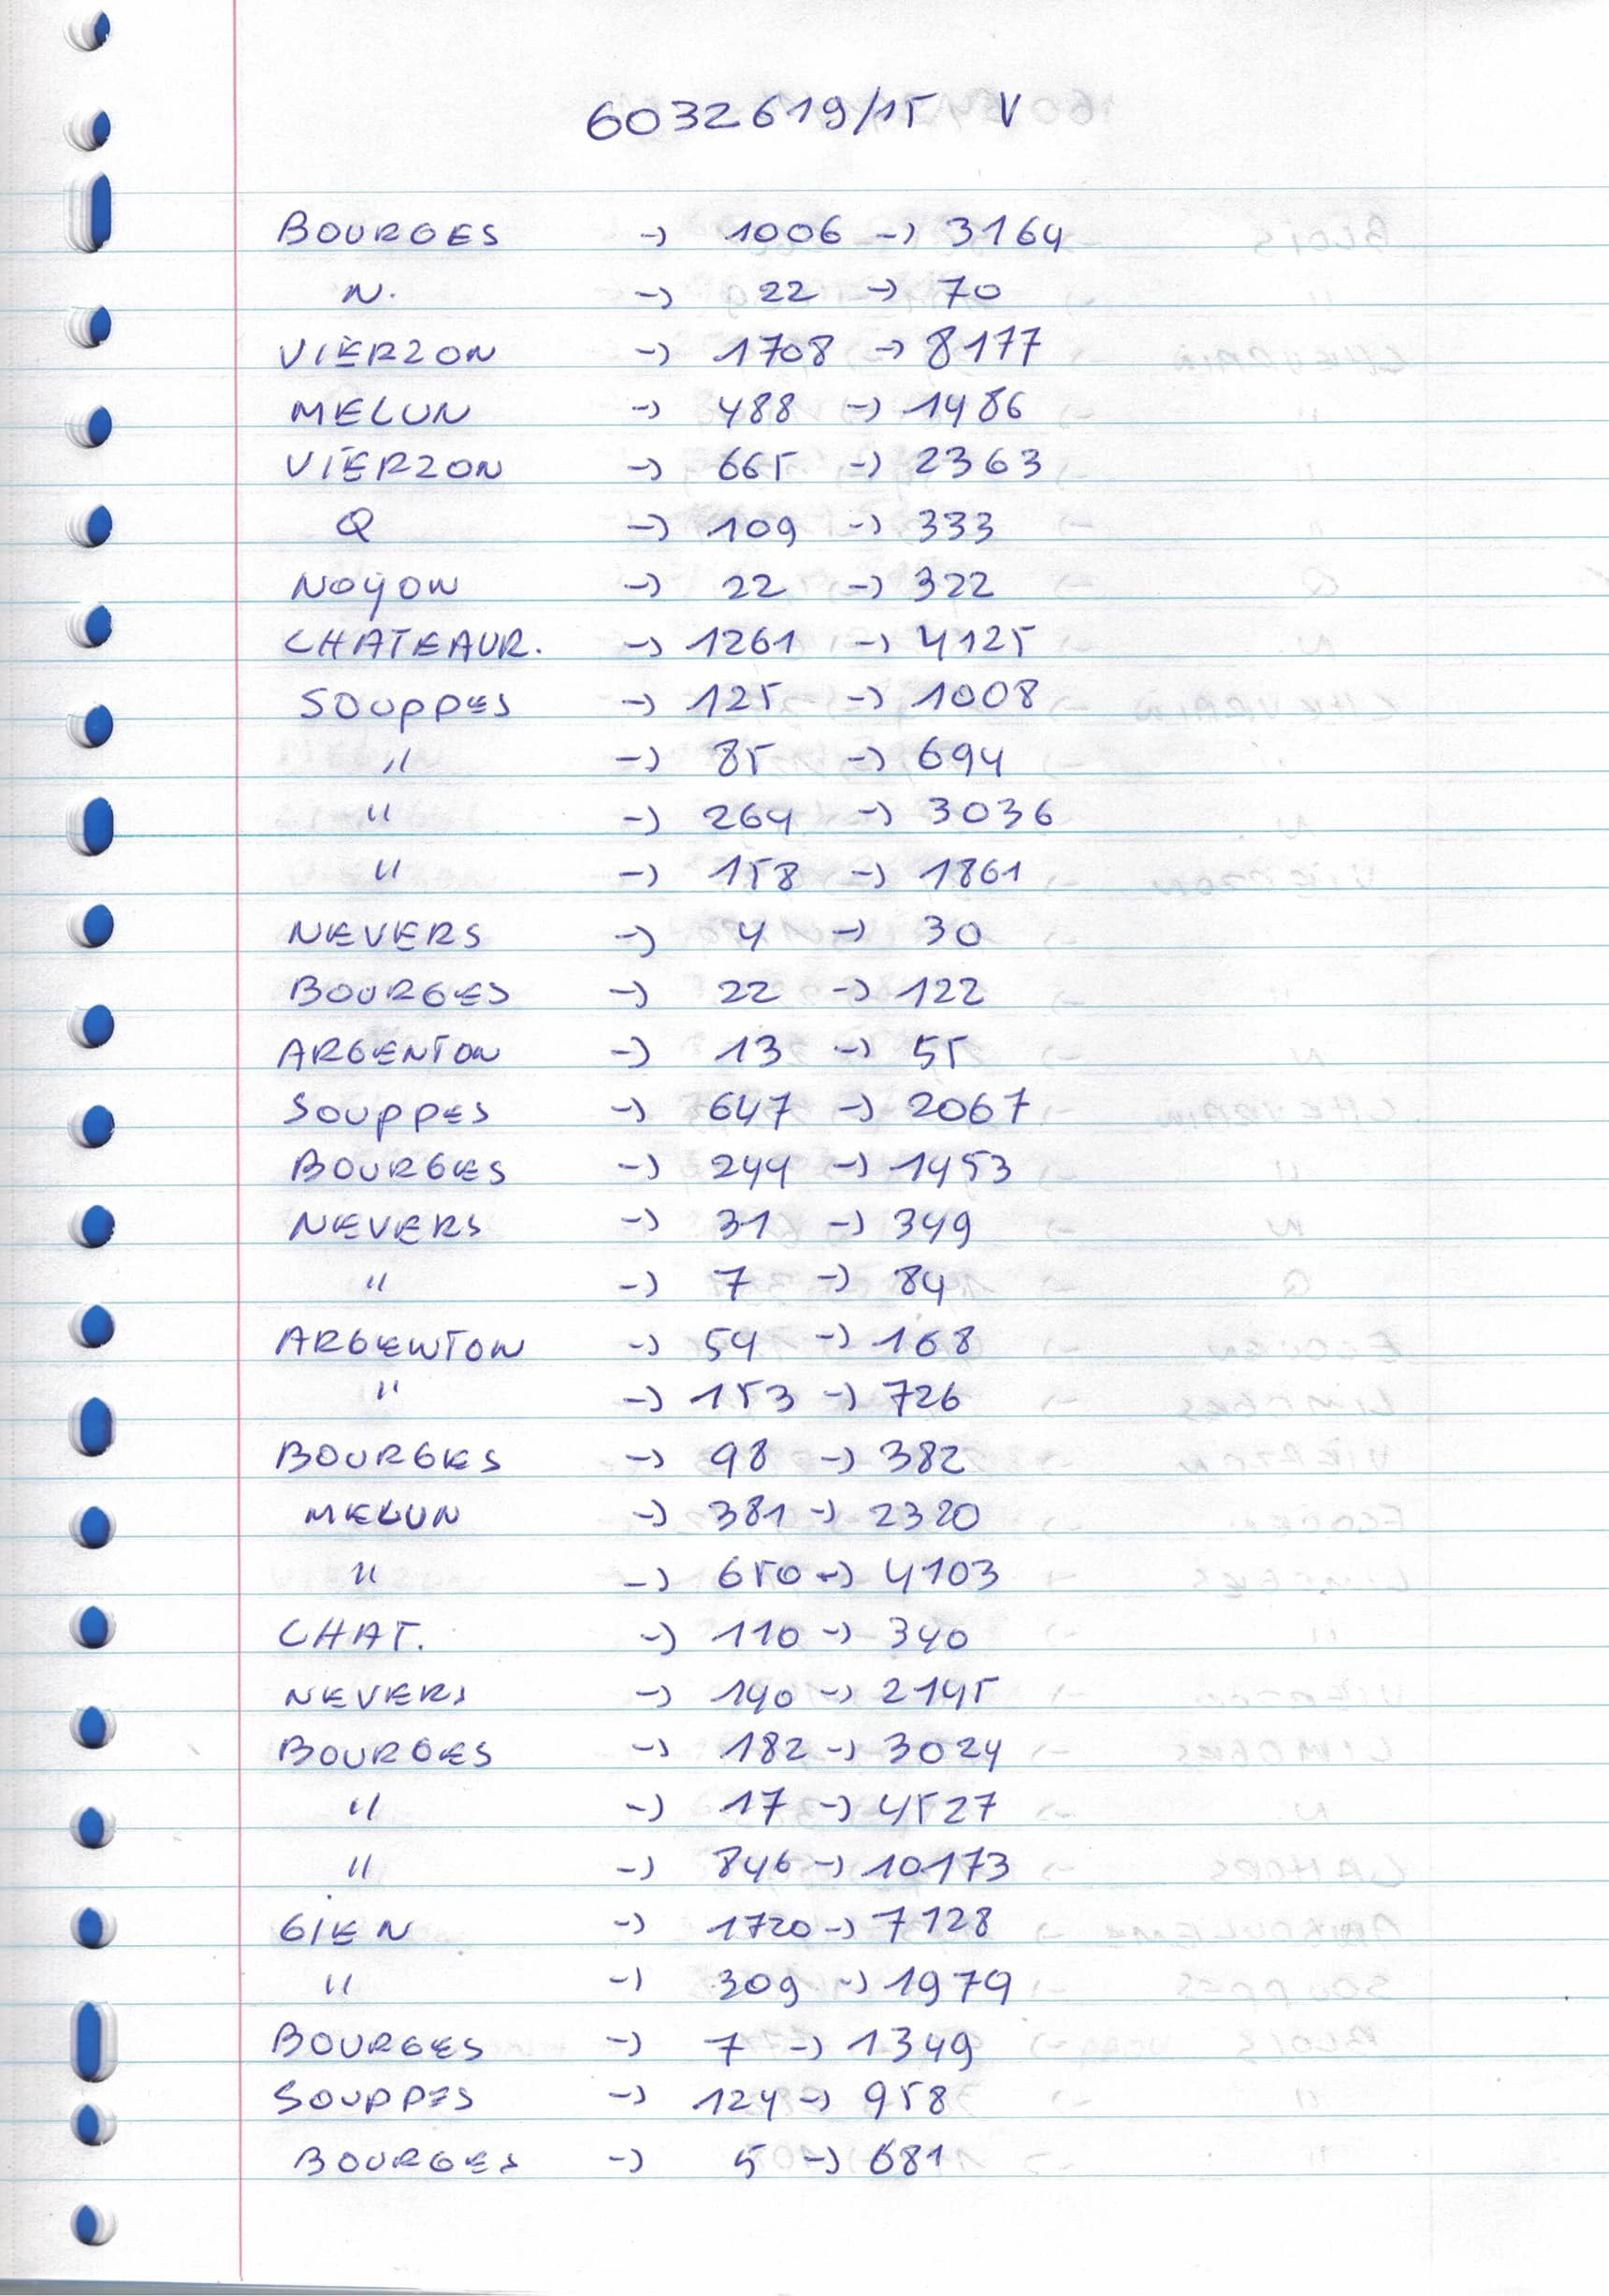 6032619/15 V
BOURGES -> 1006 -> 3164
N. -> 22 -> 70
VIERZON -> 1708 -> 8177
MELUN -> 488 -> 1486
VIERZON -> 665 -> 2363
Q -> 109 -> 333
NOYON -> 22 -> 322
CHATEAUR. -> 1261 -> 4125
SOUPPES -> 125 -> 1008
" -> 85 -> 694
" -> 264 -> 3036
" -> 158 -> 1861
NEVERS -> 4 -> 30
BOURGES -> 22 -> 122
ARGENTON -> 13 -> 55
SOUPPES -> 647 -> 2067
BOURGES -> 244 -> 1453
NEVERS -> 31 -> 349
" -> 7 -> 84
ARGENTON -> 54 -> 168
" -> 153 -> 726
BOURGES -> 98 -> 382
MELUN -> 381 -> 2320
" -> 650 -> 4103
CHAT. -> 110 -> 340
NEVERS -> 140 -> 2145
BOURGES -> 182 -> 3024
" -> 17 -> 4527
" -> 846 -> 10173
GIEN -> 1720 -> 7128
" -> 309 -> 1979
BOURGES -> 7 -> 1349
SOUPPES -> 124 -> 958
BOURGES -> 5 -> 681